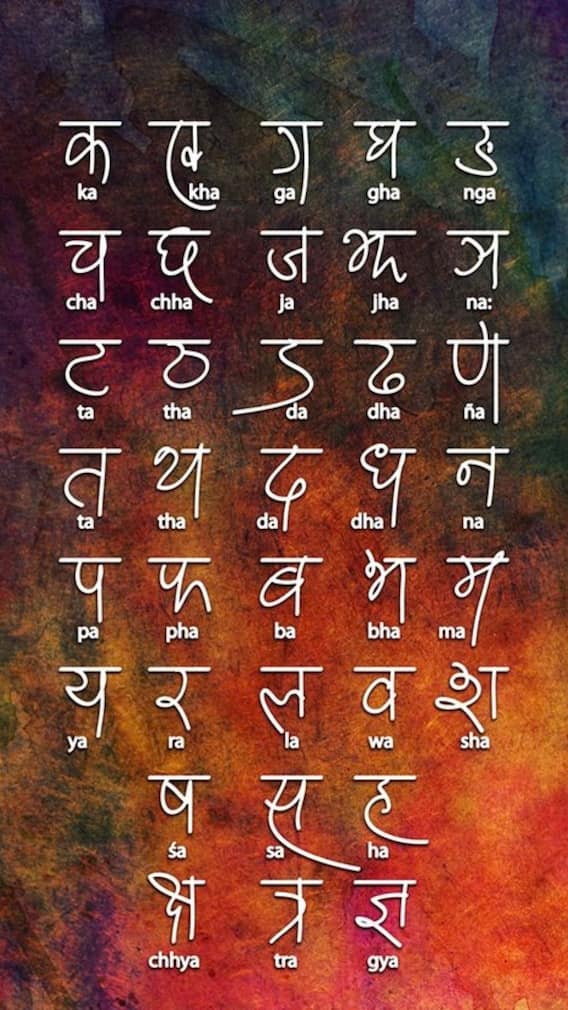 क ख ग घ ङ
ka kha ga gha nga
च छ ज झ ञ
cha chha ja jha na:
ट ठ ड ढ ण
ta tha da dha ña
त थ द ध न
ta tha da dha na
प फ ब भ म
pa pha ba bha ma
य र ल व श
ya ra la wa sha
ष स ह
śa sa ha
क्ष त्र ज्ञ
chhya tra gya